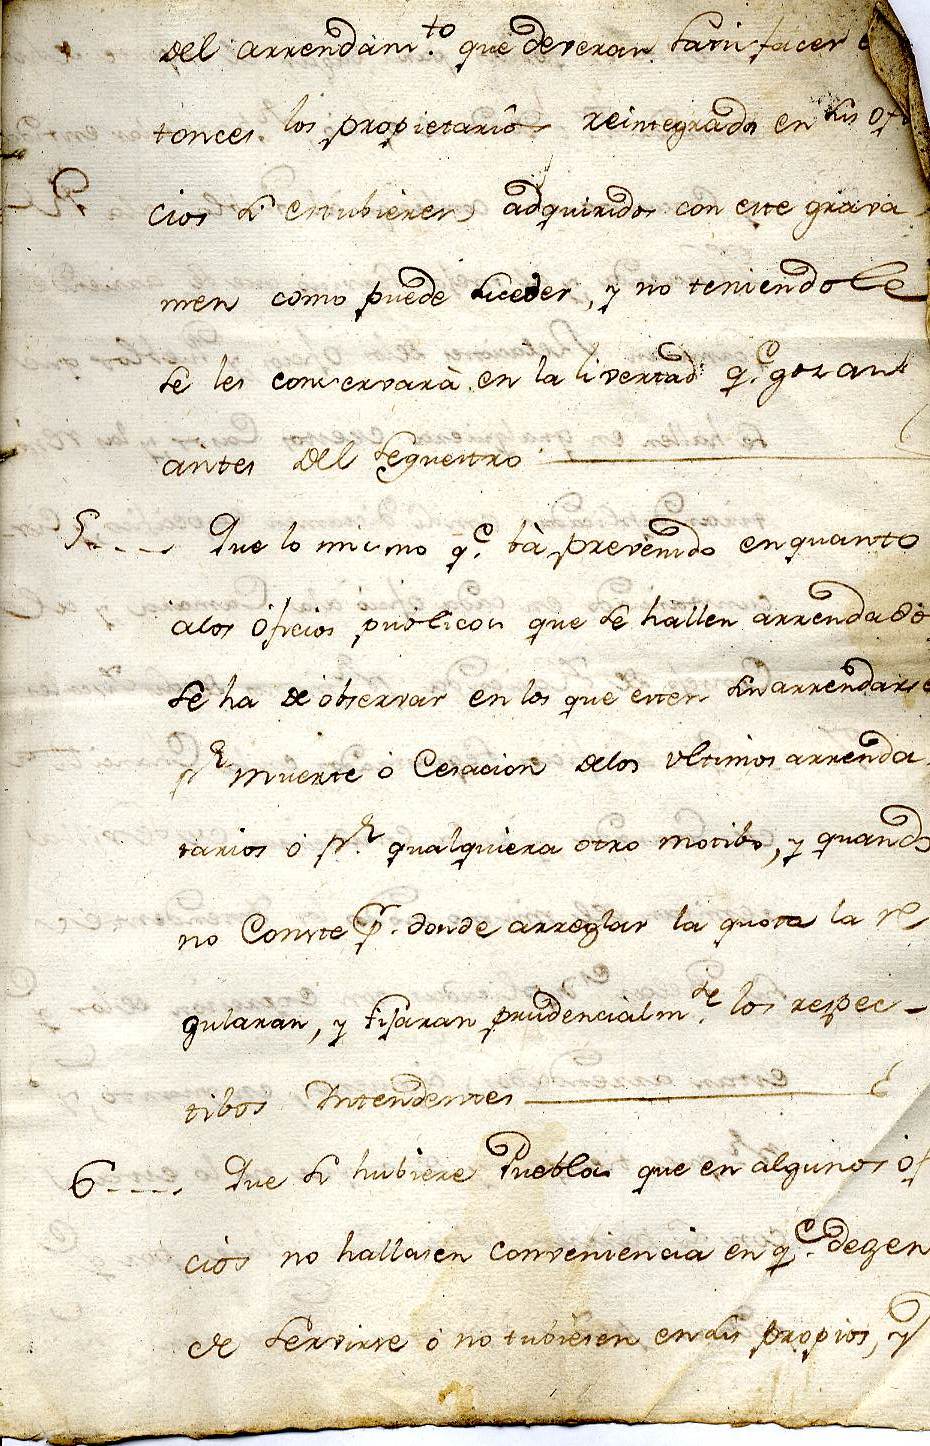 del arrendam.to que deveran satisfacer e
tonces los propietarios reintegrados en sus ofi
cios si estubieren adquiridos con este grava
men como puede suceder, y no teniendole
se les conservarà en la livertad q.e gozavan
antes del sequestro
5.---- Que lo mismo q.e và prevenido en quanto
alos Oficios publicos que se hallen arrendados
se ha de observar en los que esten sin arrendarse
p.r muerte ó Cesacion delos ultimos arrenda
tarios ó p.r qualquiera otro motibo, y quando
no Conste p.r donde arreglar la quota la re
gularan, y fijaran prudencialm.te los respec-
tibos Intendentes
6.---- Que si hubiere Pueblos que en algunos ofi
cios no hallasen conveniencia en q.e degen
de servirse ó no tubiesen en sus propios, y